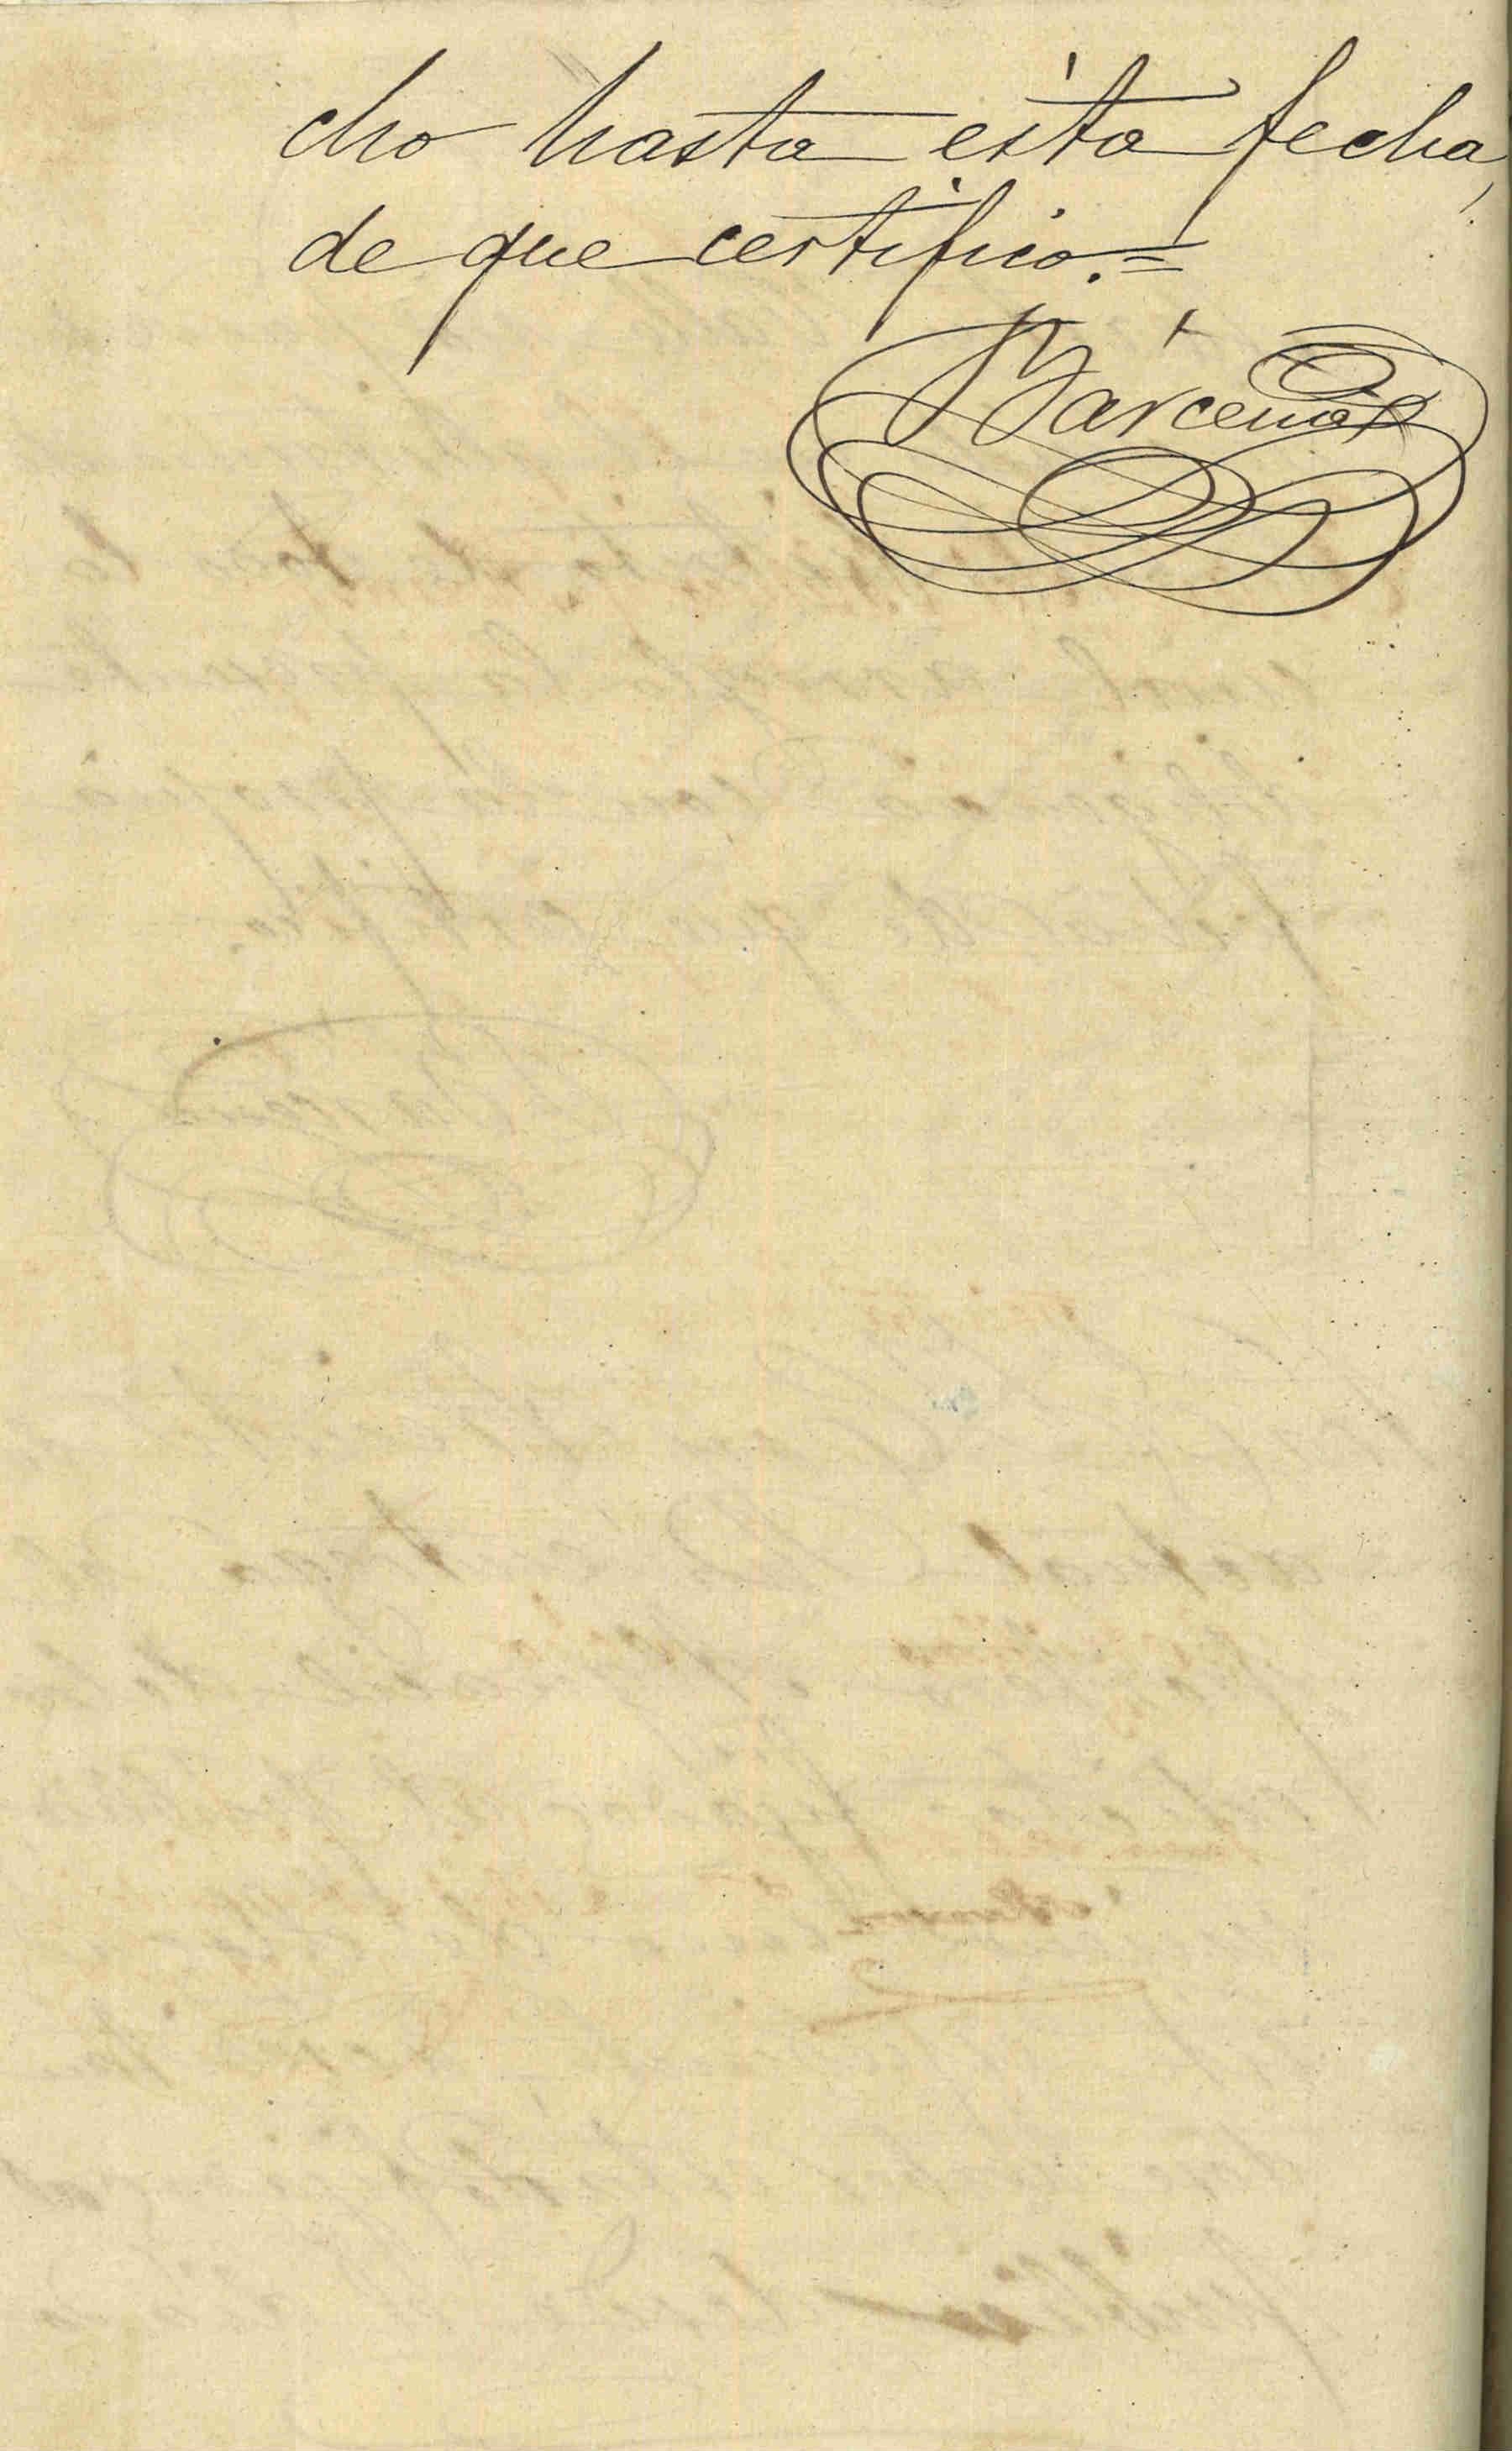 cho hasta esta fecha,
de que certifico.=
Bárcenas